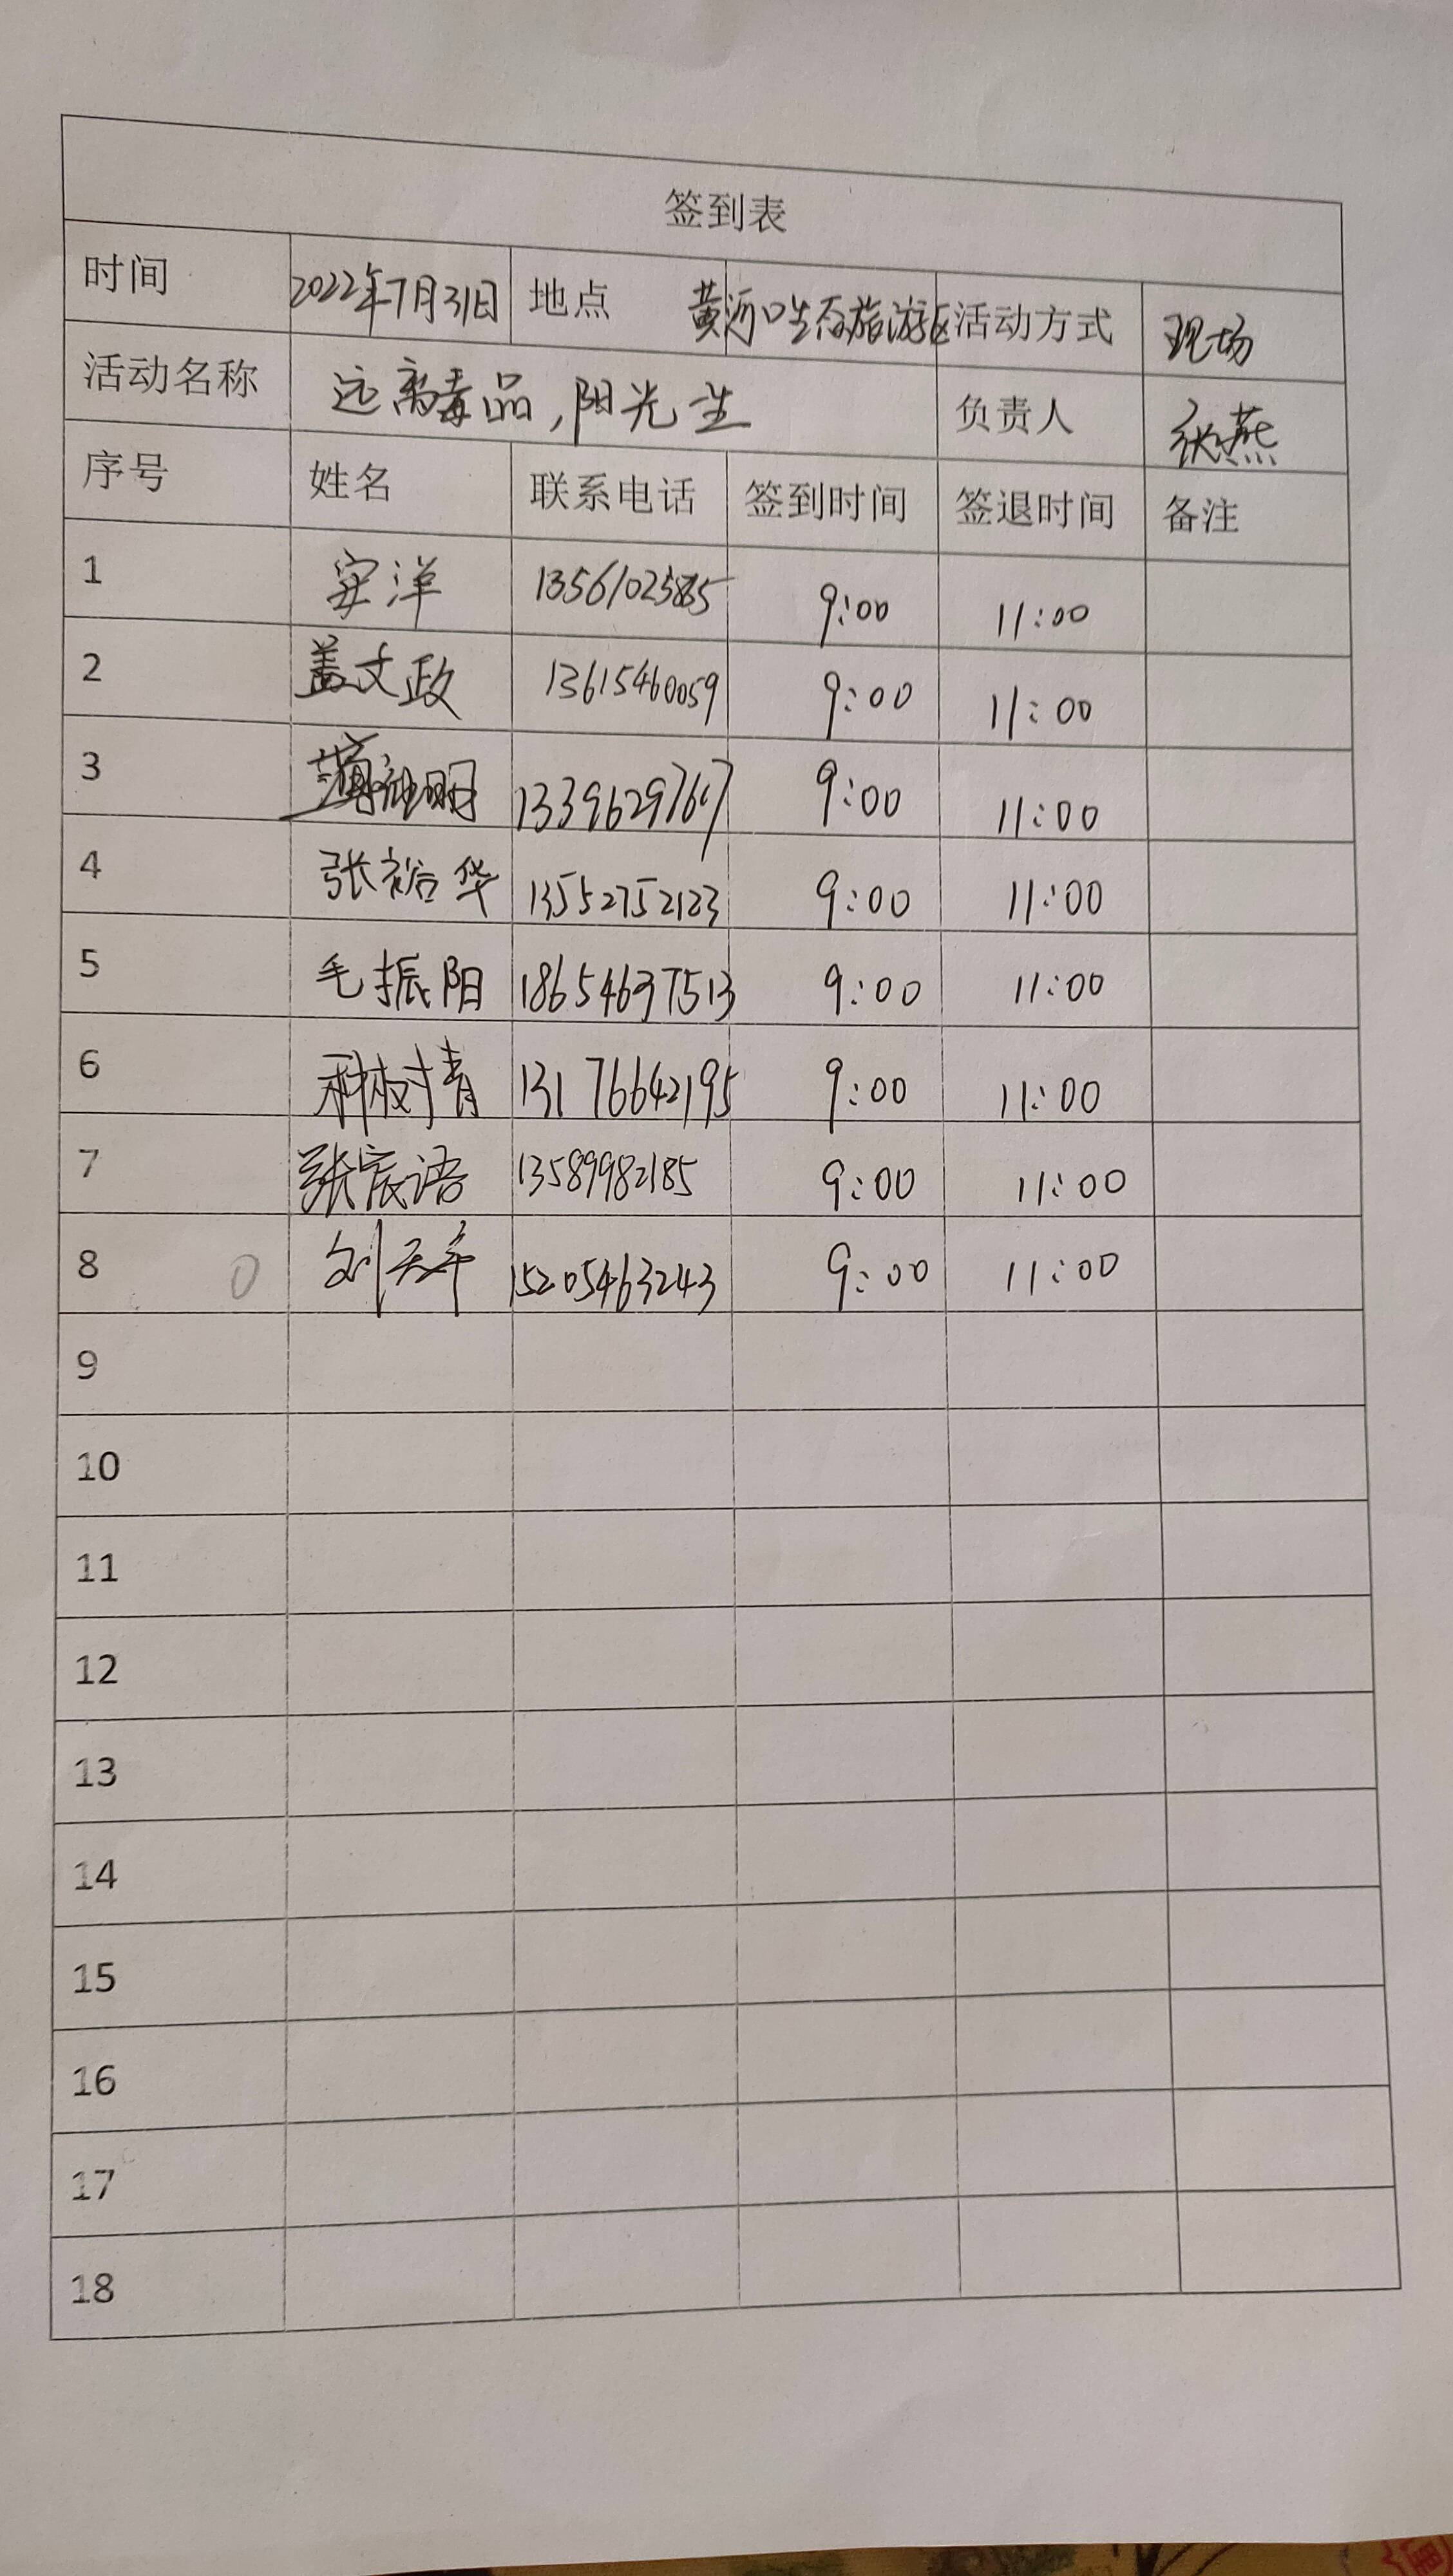 签到表
时间 2022年7月31日 地点 黄河口生态旅游区 活动方式 现场
活动名称 远离毒品,阳光一生 负责人 张燕
序号 姓名 联系电话 签到时间 签退时间 备注
1 安洋 9:00 11:00
2 盖文政 13615460059 9:00 11:00
3 9:00 11:00
4 张裕华 13552752123 9:00 11:00
5 毛振阳 18654637513 9:00 11:00
6 13176642195 9:00 11:00
7 张宸语 13589982185 9:00 11:00
8 0 15205463243 9:00 11:00
9
10
11
12
13
14
15
16
17
18